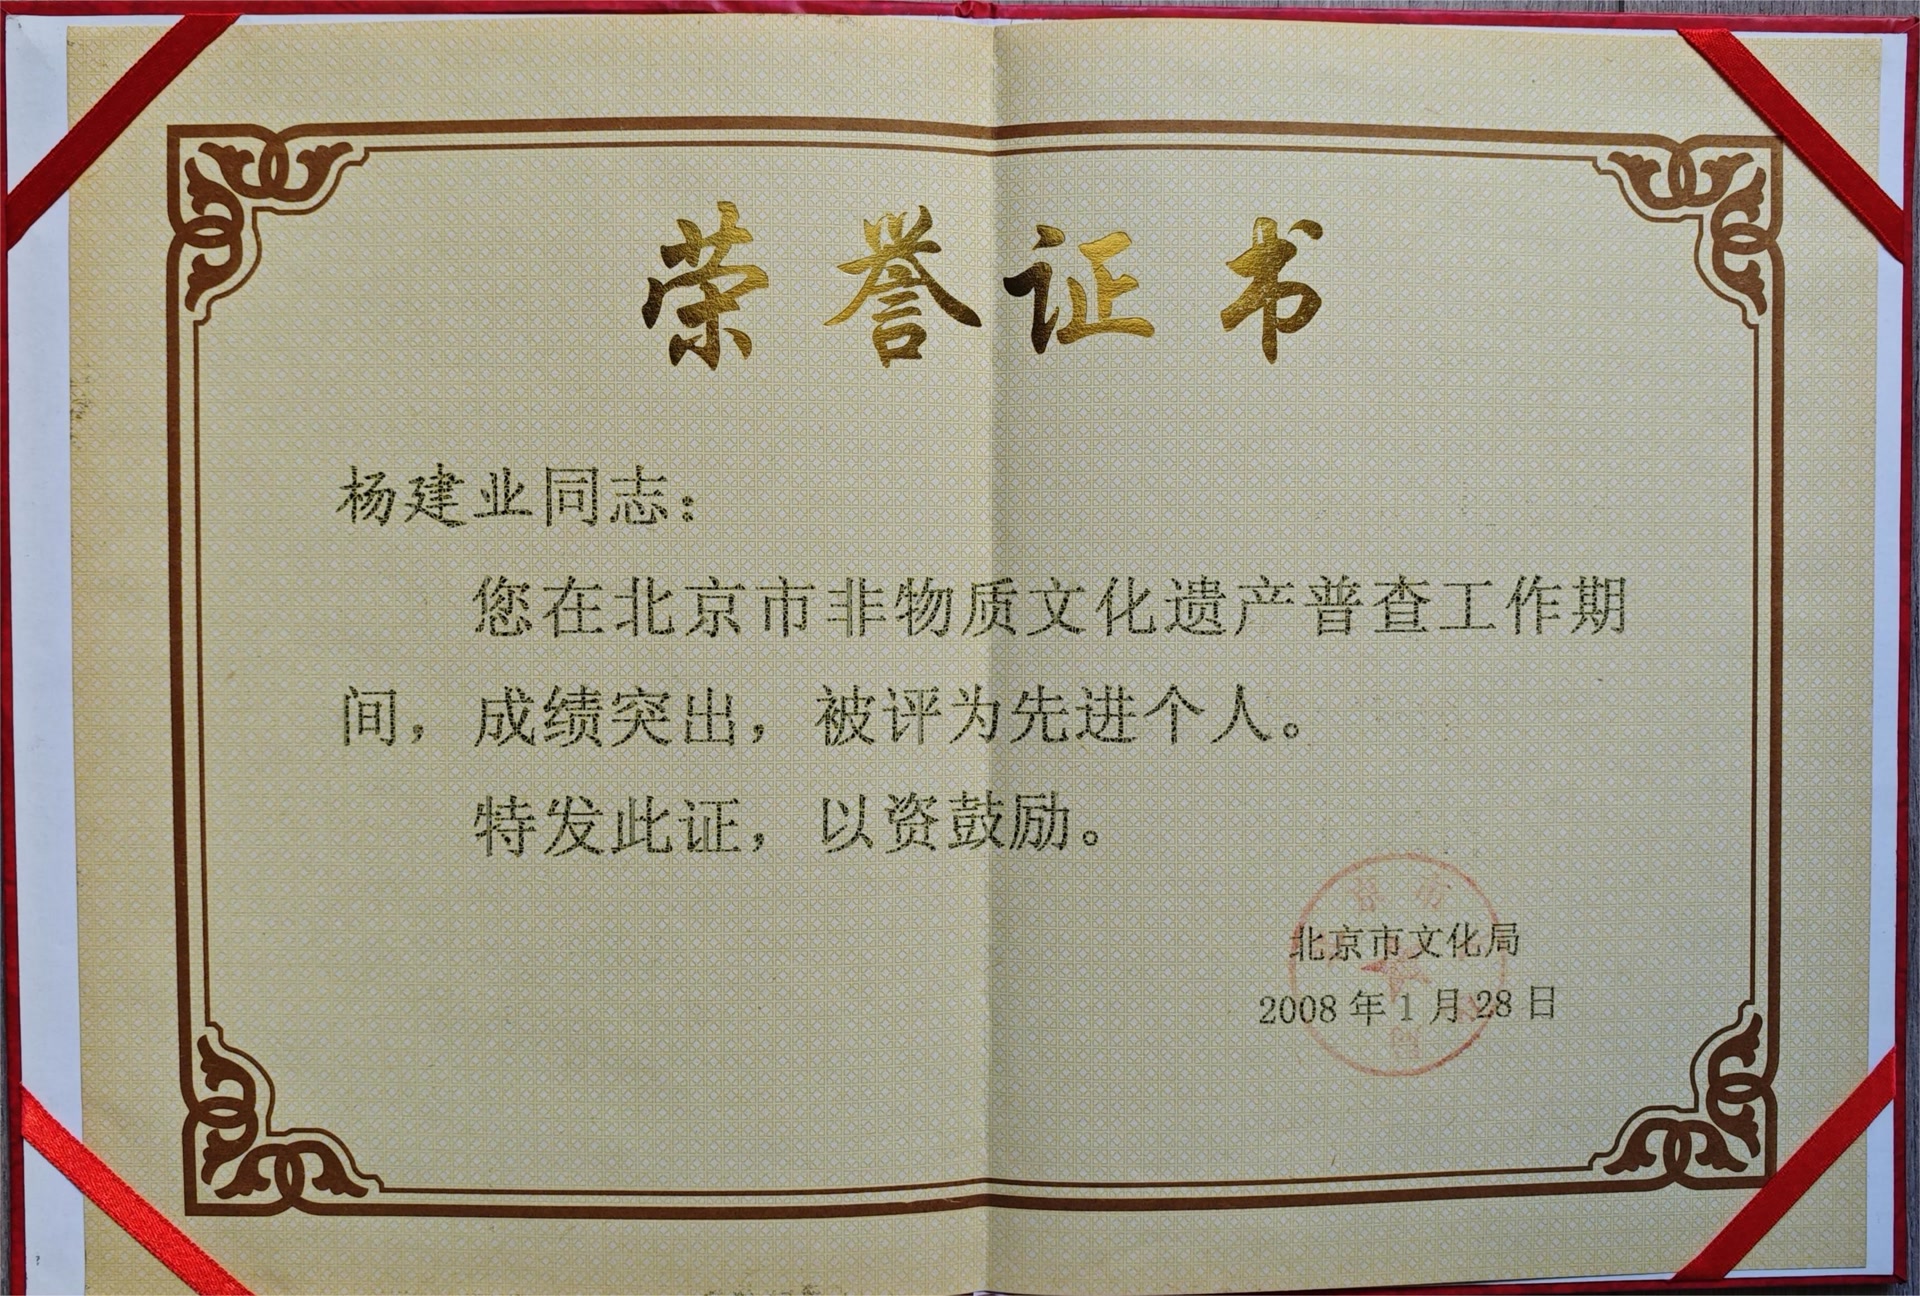 荣誉证书
杨建业同志：
您在北京市非物质文化遗产普查工作期
间，成绩突出，被评为先进个人。
特发此证，以资鼓励。
北京市文化局
2008年1月28日